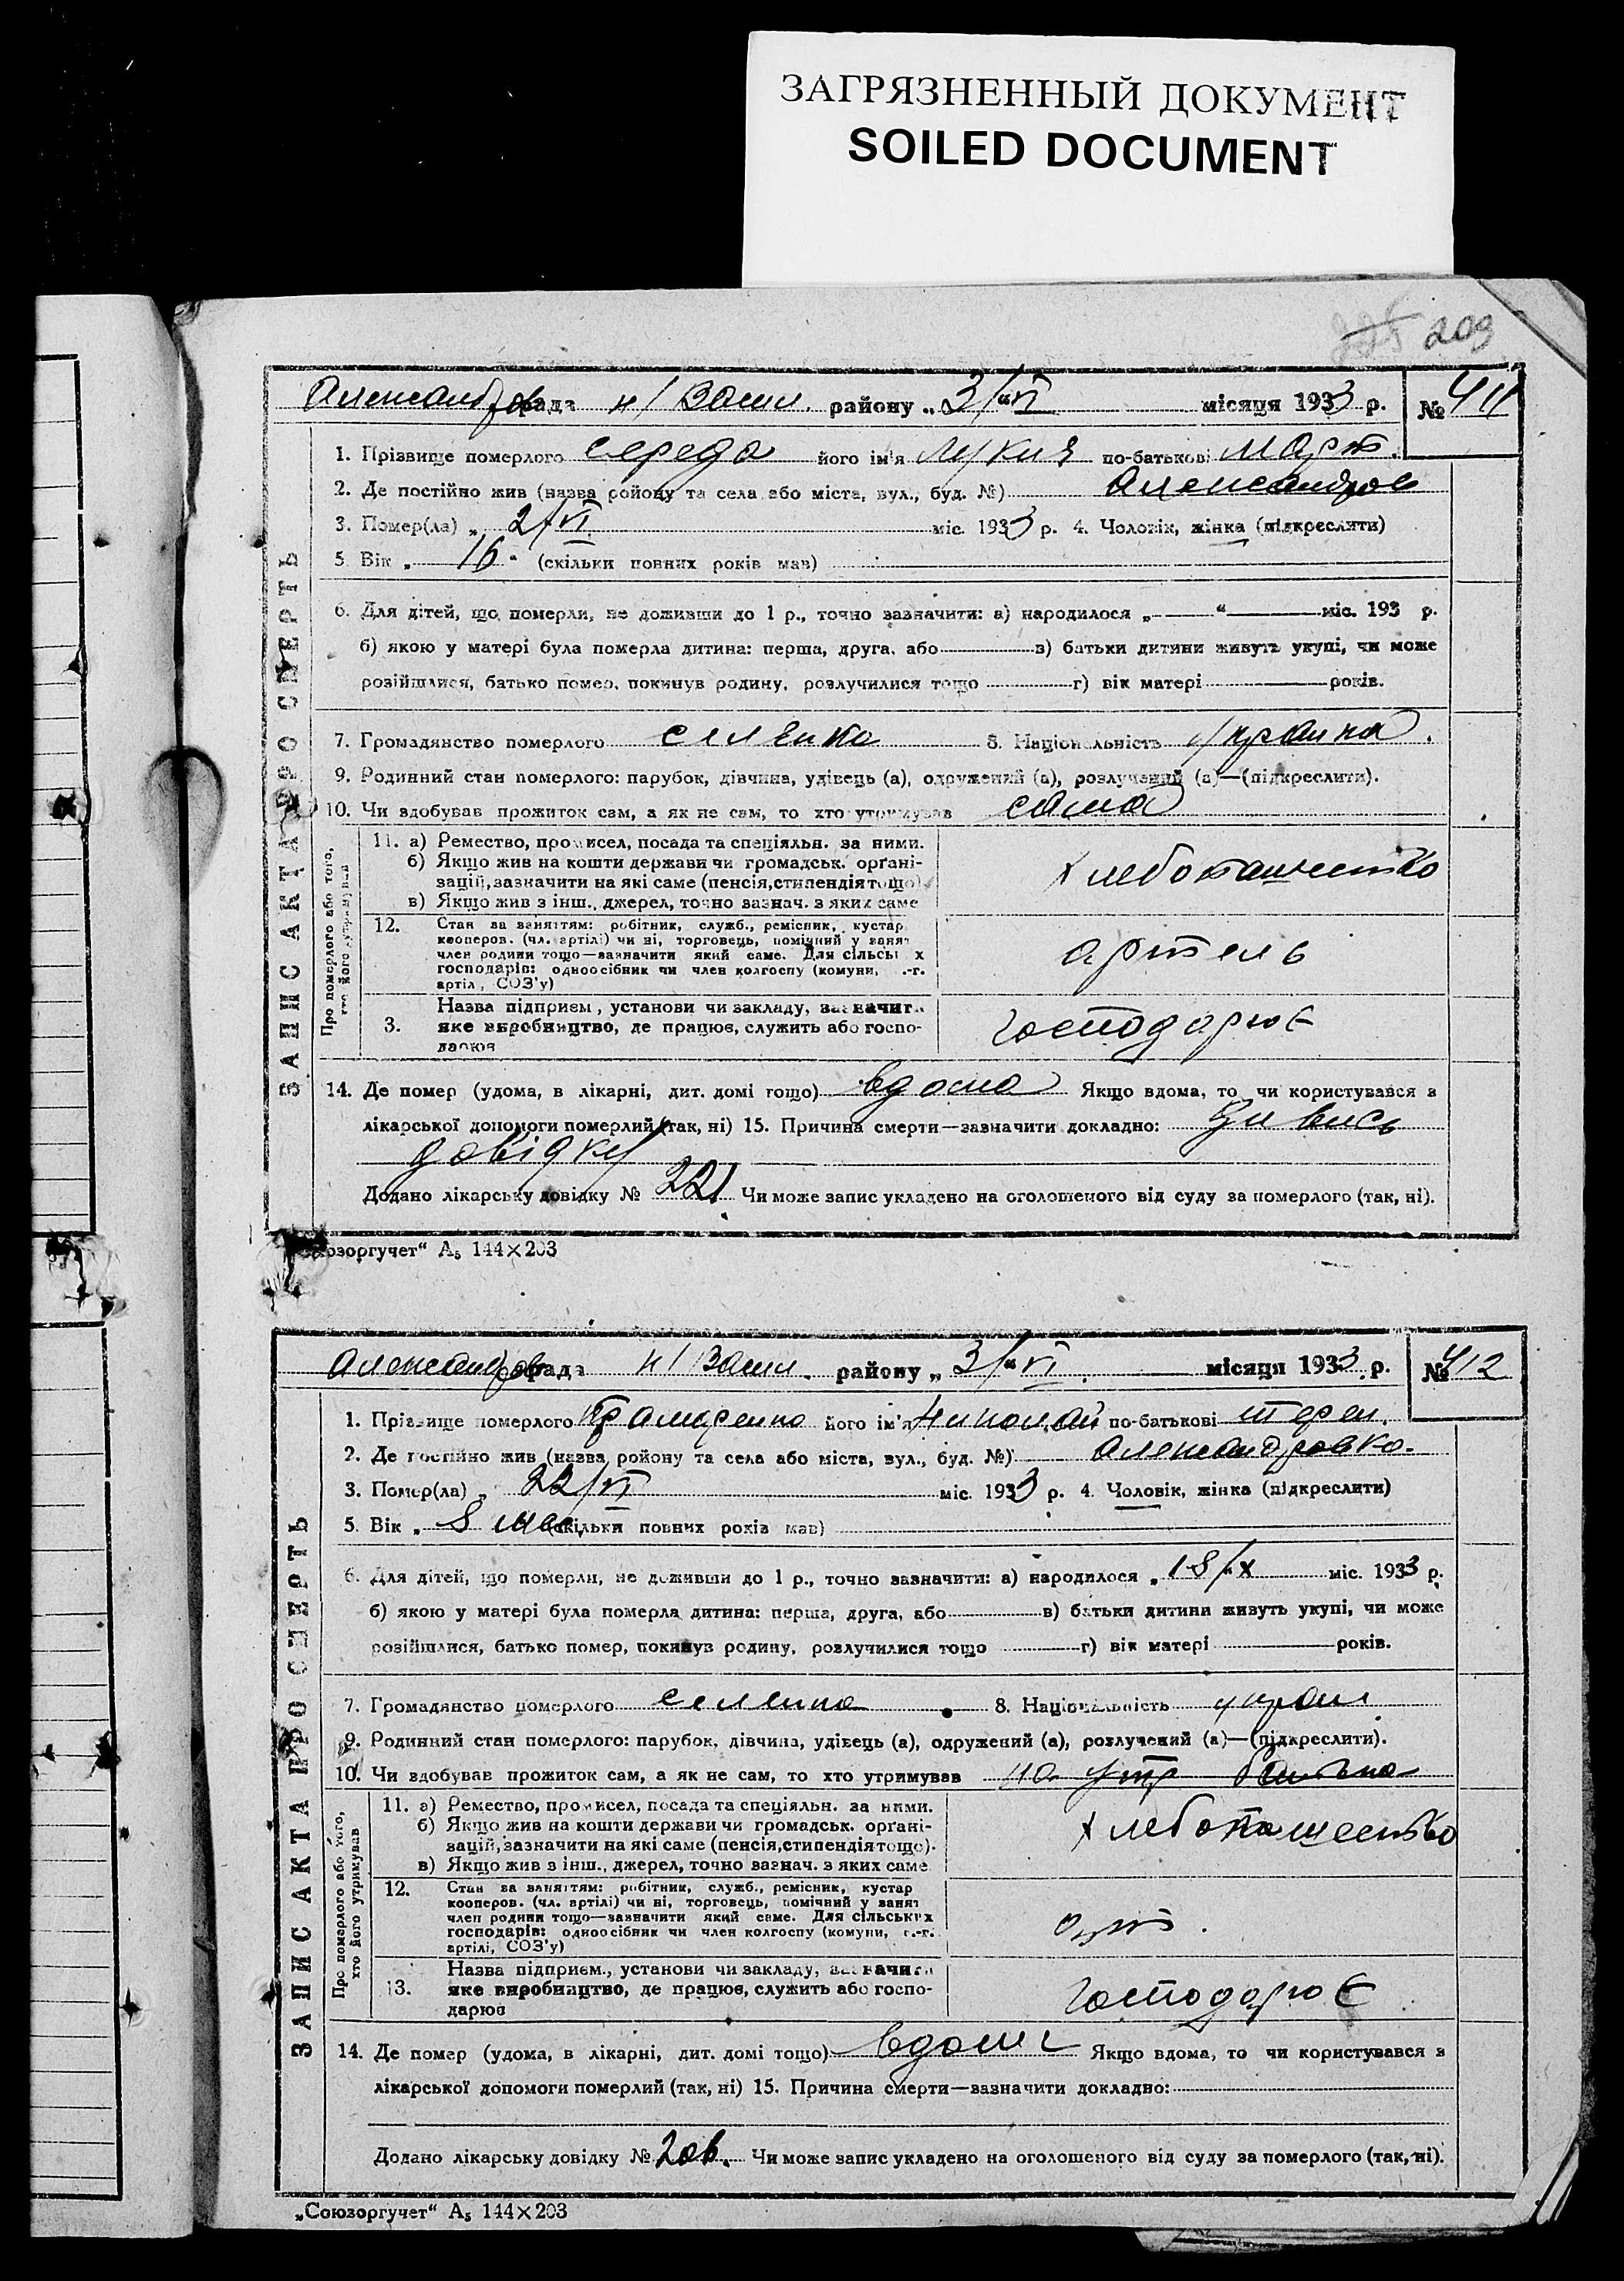 ЗАГРЯЗНЕННЫЙ ДОКУМЕНТ
SOILED DOCUMENT
209
ЗАПИС АКТА ПРО СМЕРТЬ
Александров рада н/Васил. району „3/VI“ місяця 1933 р. № 411
1. Прізвище померлого Середа його ім'я Лукия по-батькові Март.
2. Де постійно жив (назва ройону та села або міста, вул., буд. №) Александров
3. Помер(ла) „ 2/VI міс. 1933 р. 4. Чоловік, жінка (підкреслити)
5. Вік „ 16 “ (скільки повних років мав)
6. Для дітей, що померли, не доживши до 1 р., точно зазначити: а) народилося „ “ міс. 193 р.
б) якою у матері була померла дитина: перша, друга, або в) батьки дитини живуть укупі, чи може
розійшлися, батько помер, покинув родину, розлучилися тощо г) вік матері років.
7. Громадянство померлого селянка 8. Національність украинка.
9. Родинний стан померлого: парубок, дівчина, удівець (а), одружений (а), розлучений (а)—(підкреслити).
10. Чи здобував прожиток сам, а як не сам, то хто утримував сама
Про померлого або того, хто його утримував
11. а) Ремество, промисел, посада та спеціяльн. за ними.
б) Якщо жив на кошти держави чи громадськ. орґані-
зацій, зазначити на які саме (пенсія, стипендія тощо)
в) Якщо жив з інш., джерел, точно зазнач. з яких саме
хлебопашество
12. Стан за заняттям: робітник, служб., ремісник, кустар
кооперов. (чл. артілі) чи ні, торговець, помічний у занят
член родини тощо—зазначити який саме. Для сільськ х
господарів: одноосібник чи член колгоспу (комуни, .-г.
артіл, СОЗ'у)
артель
3. Назва підприєм, установи чи закладу, зазначити
яке виробництво, де працює, служить або госпо-
дарює
господарює
14. Де помер (удома, в лікарні, дит. домі тощо) вдома Якщо вдома, то чи користувався з
лікарської допомоги померлий (так, ні) 15. Причина смерти—зазначити докладно: Дивись
довідку
Додано лікарську довідку № 221 Чи може запис укладено на оголошеного від суду за померлого (так, ні).
„Союзоргучет“ А₅ 144×203
ЗАПИС АКТА ПРО СМЕРТЬ
Александров рада н/Васил. району „3/VI“ місяця 1933 р. № 412
1. Прізвище померлого його ім'я Николай по-батькові
2. Де постійно жив (назва ройону та села або міста, вул., буд. №) Александровка
3. Помер(ла) „ 22/VI міс. 1933 р. 4. Чоловік, жінка (підкреслити)
5. Вік „ 8 мес. (скільки повних років мав)
6. Для дітей, що померли, не доживши до 1 р., точно зазначити: а) народилося „ 18/X міс. 1933 р.
б) якою у матері була померла дитина: перша, друга, або в) батьки дитини живуть укупі, чи може
розійшлися, батько помер, покинув родину, розлучилися тощо г) вік матері років.
7. Громадянство померлого 8. Національність украи
9. Родинний стан померлого: парубок, дівчина, удівець (а), одружений (а), розлучений (а)—(підкреслити).
10. Чи здобував прожиток сам, а як не сам, то хто утримував на утр батька
Про померлого або того, хто його утримував
11. а) Ремество, промисел, посада та спеціяльн. за ними.
б) Якщо жив на кошти держави чи громадськ. орґані-
зацій, зазначити на які саме (пенсія, стипендія тощо).
в) Якщо жив з інш., джерел, точно зазнач. з яких саме
хлебопашество
12. Стан за заняттям: робітник, служб., ремісник, кустар
кооперов. (чл. артілі) чи ні, торговець, помічний у занят
член родини тощо—зазначити який саме. Для сільських
господарів: одноосібник чи член колгоспу (комуни, с.-г.
артілі, СОЗ'у)
арт.
13. Назва підприєм., установи чи закладу, зазначити
яке виробництво, де працює, служить або госпо-
дарює
господарює
14. Де помер (удома, в лікарні, дит. домі тощо) вдома Якщо вдома, то чи користувався з
лікарської допомоги померлий (так, ні) 15. Причина смерти—зазначити докладно:
Додано лікарську довідку № Чи може запис укладено на оголошеного від суду за померлого (так, ні).
„Союзоргучет“ А₅ 144×203